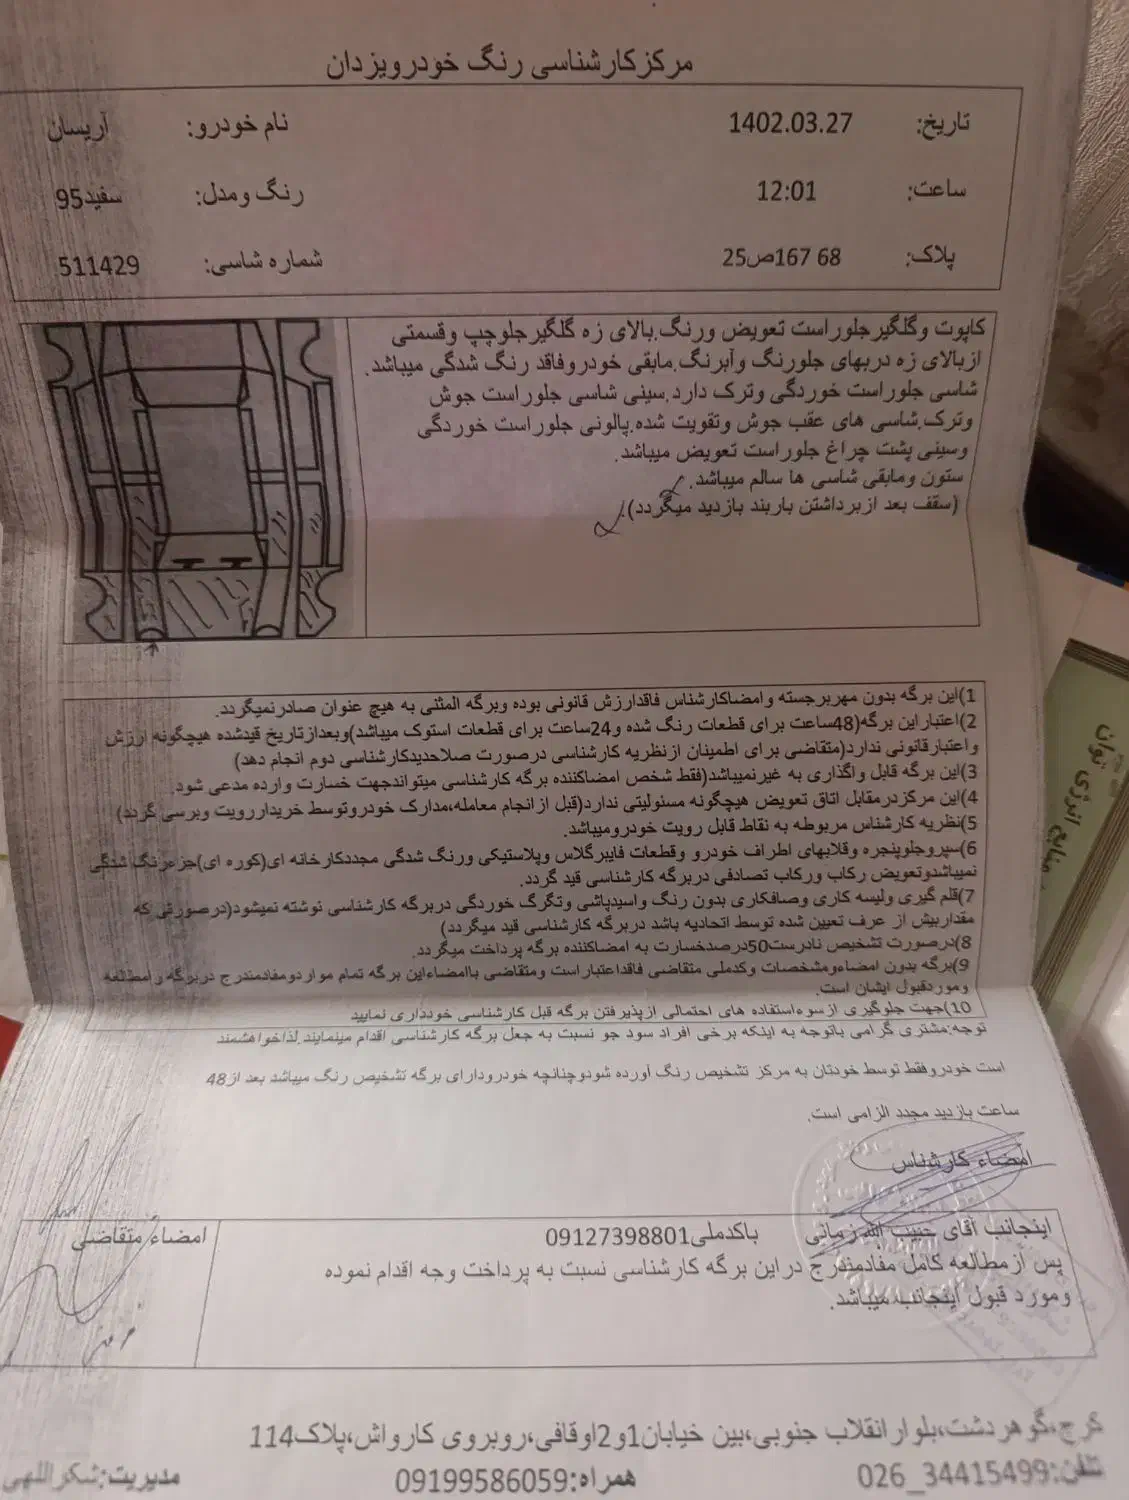 مرکزکارشناسی رنگ خودرویزدان
تاریخ: 1402.03.27 نام خودرو: آریسان
ساعت: 12:01 رنگ ومدل: سفید95
پلاک: 68 167ص25 شماره شاسی: 511429
کاپوت وگلگیرجلوراست تعویض ورنگ.بالای زه گلگیرجلوچپ وقسمتی
ازبالای زه دربهای جلورنگ وآبرنگ.مابقی خودروفاقد رنگ شدگی میباشد.
شاسی جلوراست خوردگی وترک دارد.سینی شاسی جلوراست جوش
وترک.شاسی های عقب جوش وتقویت شده.پالونی جلوراست خوردگی
وسینی پشت چراغ جلوراست تعویض میباشد.
ستون ومابقی شاسی ها سالم میباشد.
(سقف بعد ازبرداشتن باربند بازدید میگردد).
1)این برگه بدون مهربرجسته وامضاکارشناس فاقدارزش قانونی بوده وبرگه المثنی به هیچ عنوان صادرنمیگردد.
2)اعتباراین برگه(48ساعت برای قطعات رنگ شده و24ساعت برای قطعات استوک میباشد)وبعدازتاریخ قیدشده هیچگونه ارزش
واعتبارقانونی ندارد(متقاضی برای اطمینان ازنظریه کارشناسی درصورت صلاحدیدکارشناسی دوم انجام دهد)
3)این برگه قابل واگذاری به غیرنمیباشد(فقط شخص امضاکننده برگه کارشناسی میتواندجهت خسارت وارده مدعی شود.
4)این مرکزدرمقابل اتاق تعویض هیچگونه مسئولیتی ندارد(قبل ازانجام معامله،مدارک خودروتوسط خریداررویت وبرسی گردد)
5)نظریه کارشناس مربوطه به نقاط قابل رویت خودرومیباشد.
6)سپروجلوپنجره وقلابهای اطراف خودرو وقطعات فایبرگلاس وپلاستیکی ورنگ شدگی مجددکارخانه ای(کوره ای)جزءرنگ شدگی
نمیباشدوتعویض رکاب ورکاب تصادفی دربرگه کارشناسی قید گردد.
7)قلم گیری ولیسه کاری وصافکاری بدون رنگ واسیدپاشی وتگرگ خوردگی دربرگه کارشناسی نوشته نمیشود(درصورتی که
مقداربیش از عرف تعیین شده توسط اتحادیه باشد دربرگه کارشناسی قید میگردد)
8)درصورت تشخیص نادرست50درصدخسارت به امضاکننده برگه پرداخت میگردد.
9)برگه بدون امضاءومشخصات وکدملی متقاضی فاقداعتباراست ومتقاضی باامضاءاین برگه تمام مواردومفادمندرج دربرگه رامطالعه
وموردقبول ایشان است.
10)جهت جلوگیری ازسوءاستفاده های احتمالی ازپذیرفتن برگه قبل کارشناسی خودداری نمایید
توجه:مشتری گرامی باتوجه به اینکه برخی افراد سود جو نسبت به جعل برگه کارشناسی اقدام مینمایند.لذاخواهشمند
است خودروفقط توسط خودتان به مرکز تشخیص رنگ آورده شودوچنانچه خودرودارای برگه تشخیص رنگ میباشد بعد از48
ساعت بازدید مجدد الزامی است.
امضاء کارشناس
اینجانب آقای حبیب الله زمانی باکدملی09127398801 امضاء متقاضی
پس ازمطالعه کامل مفادمندرج دراین برگه کارشناسی نسبت به پرداخت وجه اقدام نموده
ومورد قبول اینجانب میباشد.
کرج،گوهردشت،بلوارانقلاب جنوبی،بین خیابان1و2اوقافی،روبروی کارواش،پلاک114
تلفن:34415499_026 همراه:09199586059 مدیریت:شکراللهی
منابع انرژی توان